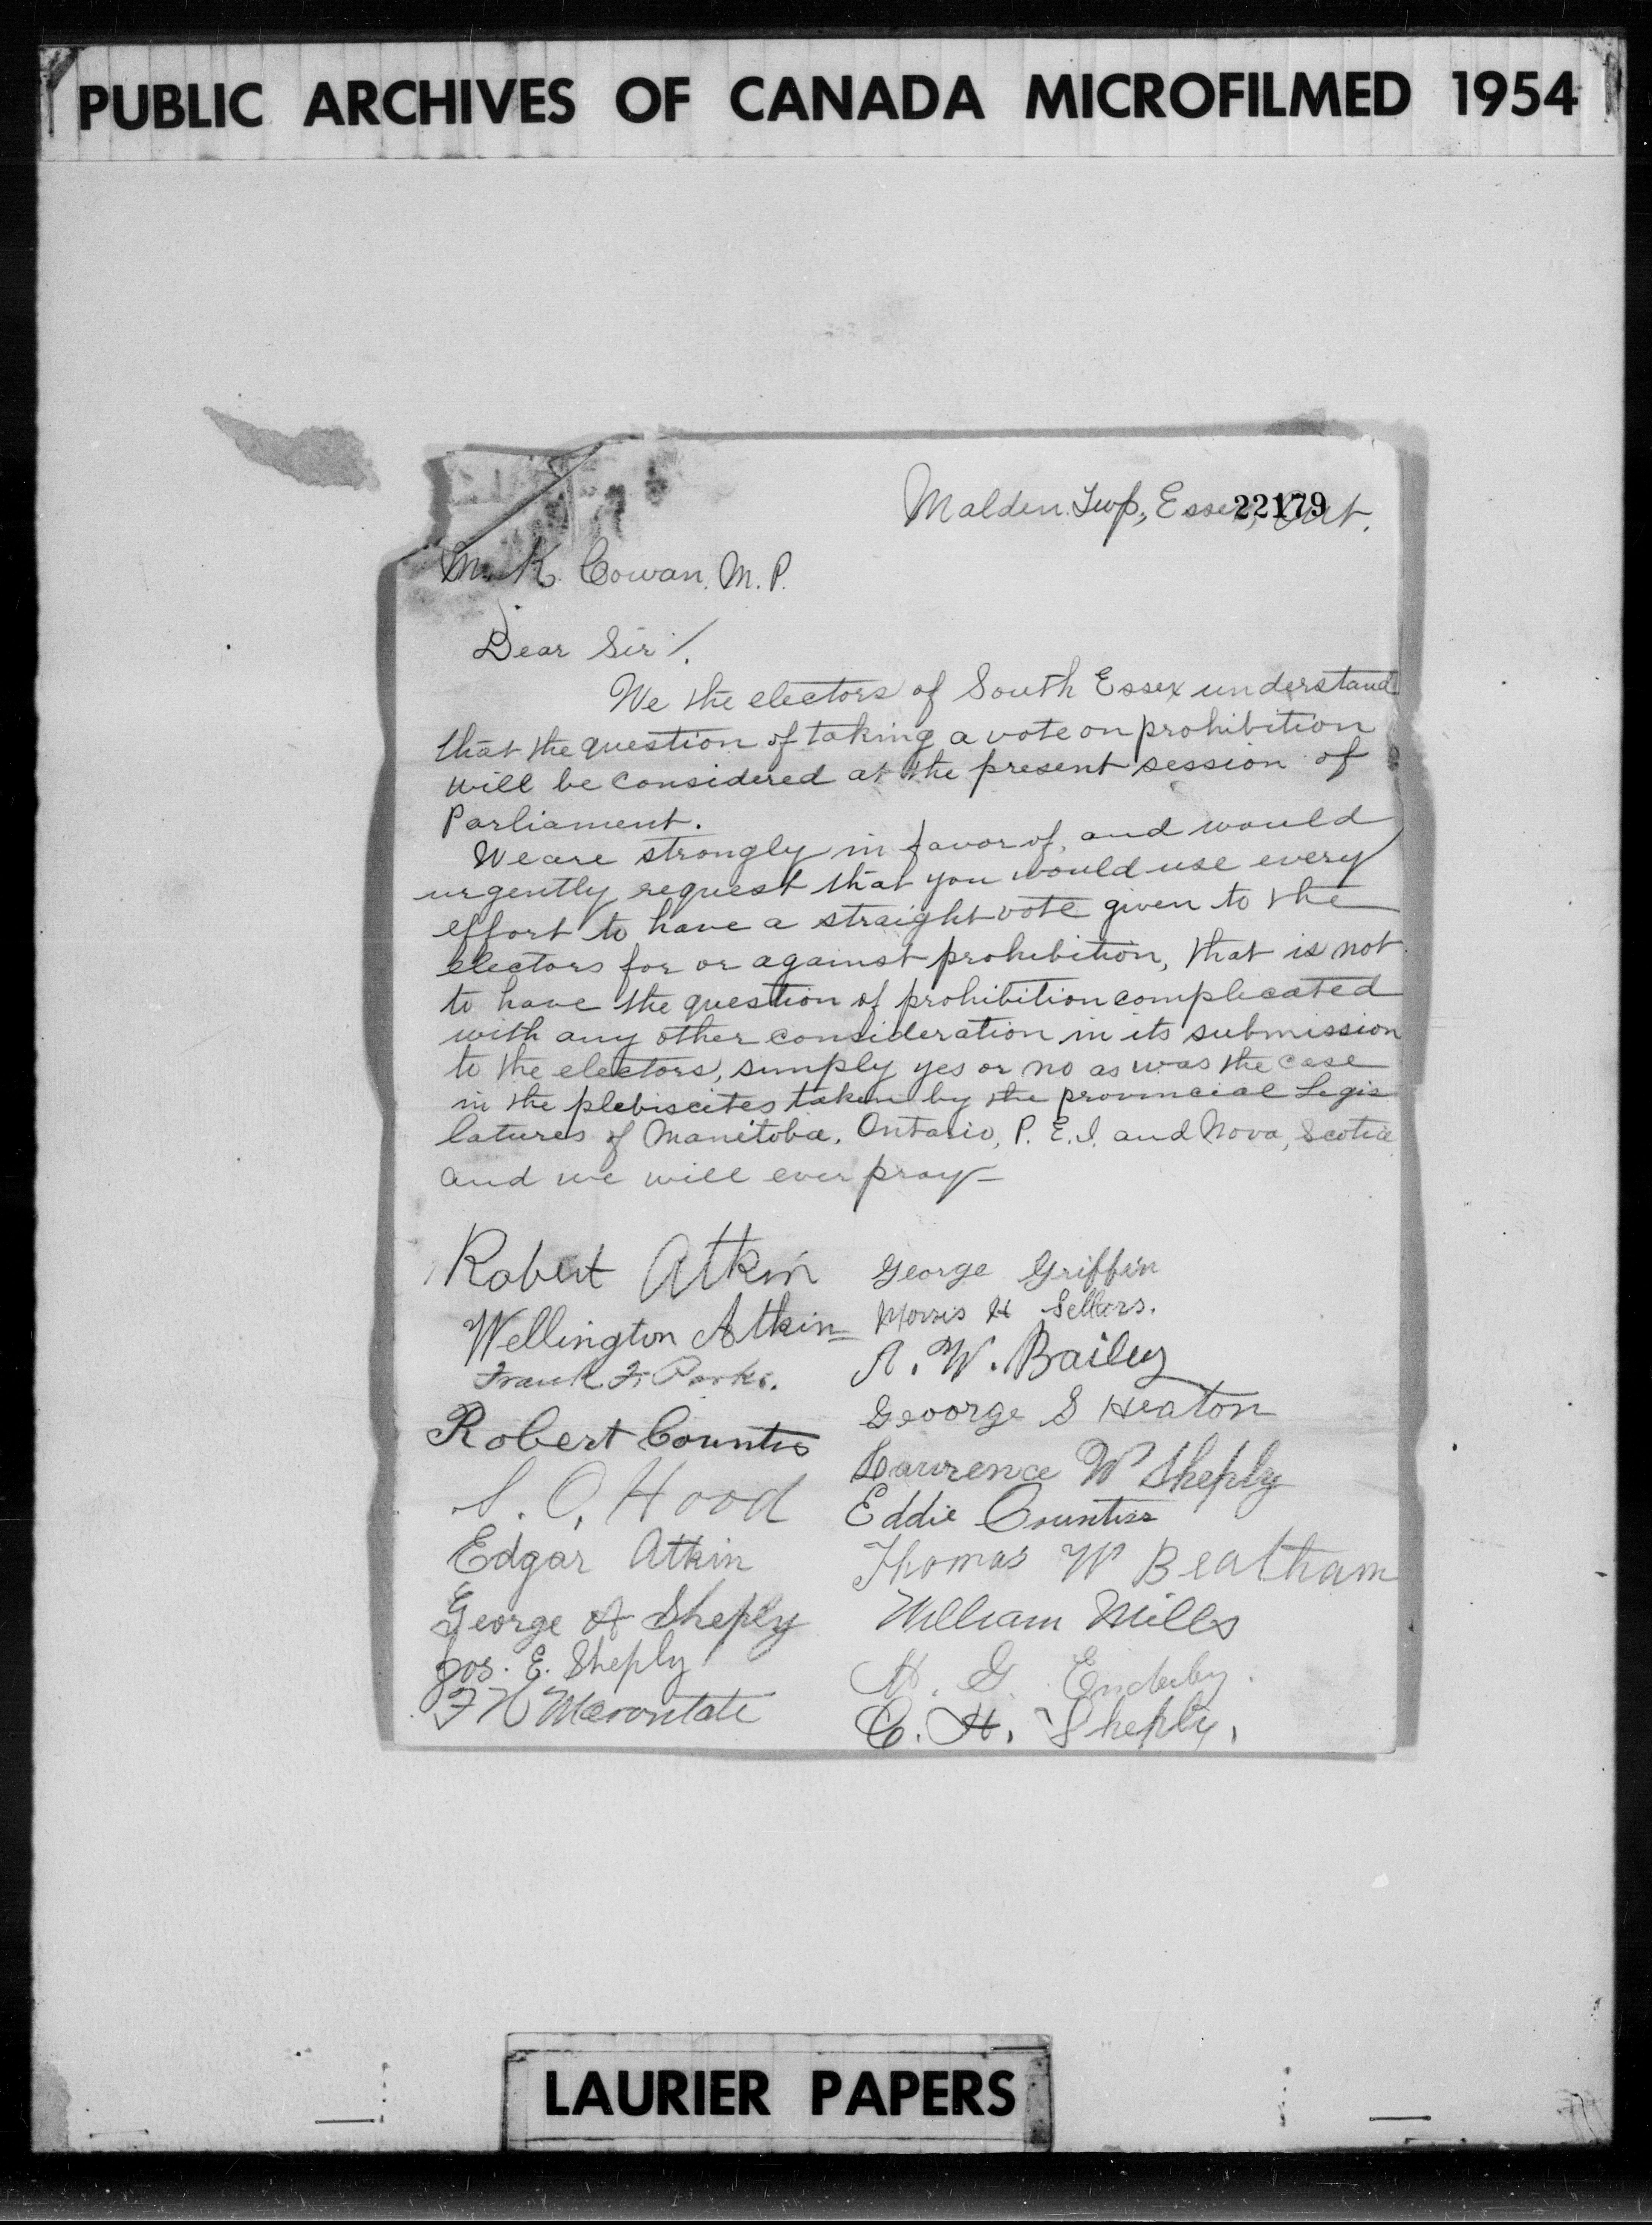 PUBLIC ARCHIVES OF CANADA MICROFILMED 1954
Malden Twp., Essex, Ont.
22179
M. K. Cowan. M. P.
Dear Sir /.
We the electors of South Essex understand
that the question of taking a vote on prohibition
will be considered at the present session of
Parliament.
We are strongly in favor of, and would
urgently request that you would use every
effort to have a straight vote given to the
electors for or against prohibition, that is not
to have the question of prohibition complicated
with any other consideration in its submission
to the electors, simply yes or no as was the case
in the plebiscites taken by the provincial Legis
latures of Manitoba, Ontario, P. E. I. and Nova, Scotia
and we will ever pray —
Robert Atkin
Wellington Atkin
Frank F. Parks.
Robert Countis
S. O. Hood
Edgar Atkin
George A Sheply
Jos. E. Sheply
F H Marontate
George Griffin
Morris H Sellars.
A. W. Bailey
Geoorge S Heaton
Lawrence W Sheply
Eddie Countiss
Thomas W Beatham
William Mills
H. G. Enderby.
C. H. Sheply.
LAURIER PAPERS